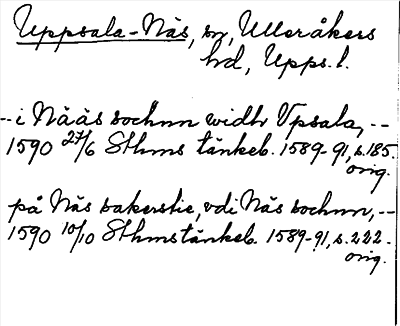 Uppsala-Näs, sn, Ulleråkers
hd, Upps. l.
-- i Nääs sochnn widh Vpsala, --
1590 27/6 Sthms tänkeb. 1589-91, s. 185.
orig.
på Näs sakerstie, vdi Näs sochnn, --
1590 10/10 Sthms tänkeb. 1589-91, s. 222.
orig.